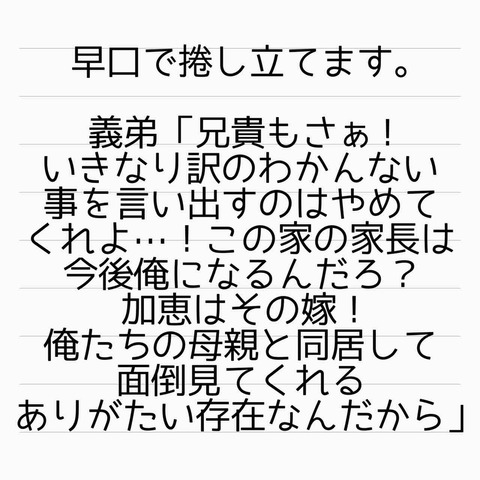 早口で捲し立てます。
義弟「兄貴もさぁ！
いきなり訳のわかんない
事を言い出すのはやめて
くれよ…！この家の家長は
今後俺になるんだろ？
加恵はその嫁！
俺たちの母親と同居して
面倒見てくれる
ありがたい存在なんだから」